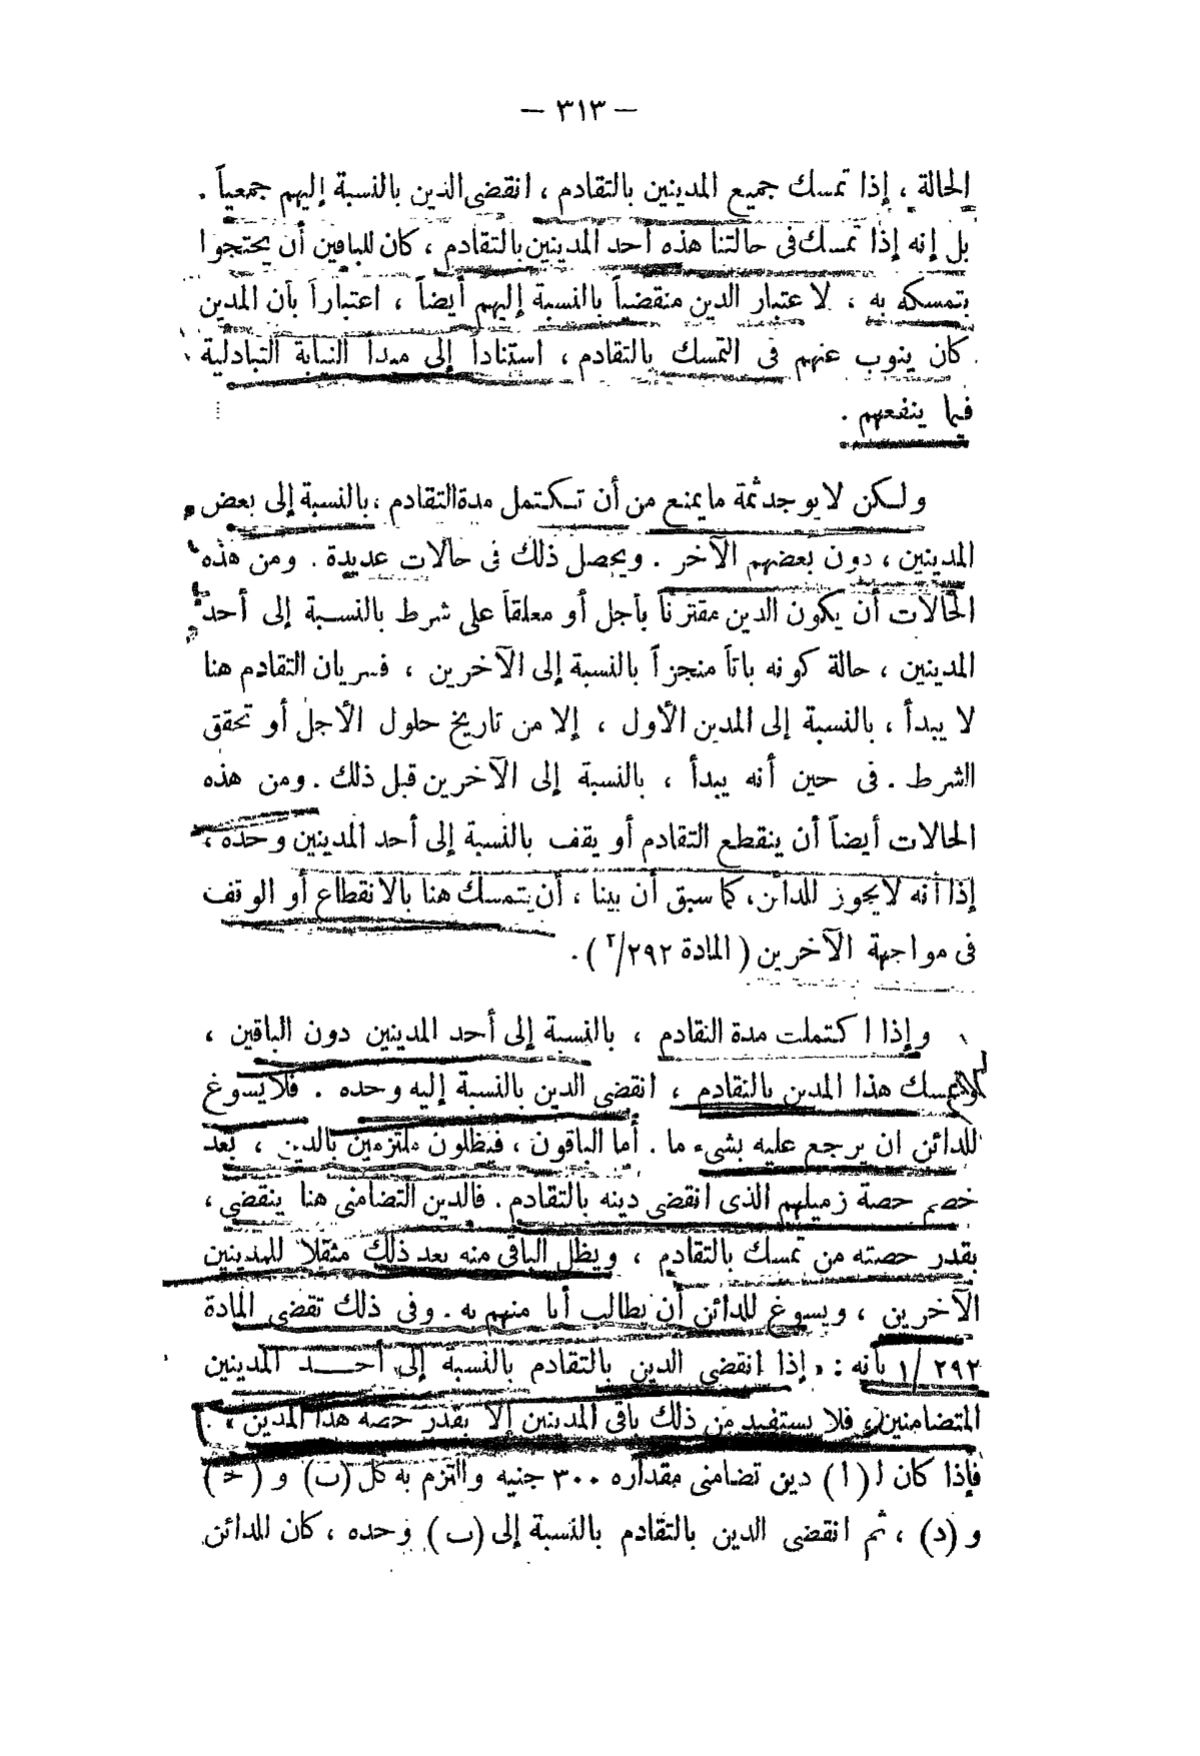 — ٣١٣ —
الحالة ، إذا تمسك جميع المدينين بالتقادم ، انقضى الدين بالنسبة إليهم جمعياً .
بل إنه إذا تمسك فى حالتنا هذه أحد المدينين بالتقادم ، كان للباقين أن يحتجوا
بتمسكه به ، لاعتبار الدين منقضياً بالنسبة إليهم أيضاً ، اعتباراً بأن المدين
كان ينوب عنهم فى التمسك بالتقادم ، استناداً إلى مبدأ النيابة التبادلية
فيما ينفعهم .
ولكن لا يوجد ثمة ما يمنع من أن تكتمل مدة التقادم ، بالنسبة إلى بعض
المدينين ، دون بعضهم الآخر . ويحصل ذلك فى حالات عديدة . ومن هذه
الحالات أن يكون الدين مقترناً بأجل أو معلقاً على شرط بالنسبة إلى أحد
المدينين ، حالة كونه باتاً منجزاً بالنسبة إلى الآخرين ، فسريان التقادم هنا
لا يبدأ ، بالنسبة إلى المدين الأول ، إلا من تاريخ حلول الأجل أو تحقق
الشرط . فى حين أنه يبدأ ، بالنسبة إلى الآخرين قبل ذلك . ومن هذه
الحالات أيضاً أن ينقطع التقادم أو يقف بالنسبة إلى أحد المدينين وحده ،
إذا أنه لا يجوز للدائن ، كما سبق أن بينا ، أن يتمسك هنا بالانقطاع أو الوقف
فى مواجهة الآخرين ( المادة ٢٩٢/٢ ) .
وإذا اكتملت مدة التقادم ، بالنسبة إلى أحد المدينين دون الباقين ،
وتمسك هذا المدين بالتقادم ، انقضى الدين بالنسبة إليه وحده . فلا يسوغ
للدائن ان يرجع عليه بشىء ما . أما الباقون ، فيظلون ملتزمين بالدين ، بعد
خصم حصة زميلهم الذى انقضى دينه بالتقادم . فالدين التضامنى هنا ينقضى ،
بقدر حصته من تمسك بالتقادم ، ويظل الباقى منه بعد ذلك مثقلا للمدينين
الآخرين ، ويسوغ للدائن أن يطالب أيا منهم به . وفى ذلك تقضى المادة
٢٩٢ /١ بأنه : « إذا انقضى الدين بالتقادم بالنسبة إلى أحد المدينين
المتضامنين ، فلا يستفيد من ذلك باقى المدينين إلا بقدر حصة هذا المدين » .
فإذا كان ل (ا) دين تضامنى مقداره ٣٠٠ جنيه والتزم به كل (ب) و (حـ)
و (د) ، ثم انقضى الدين بالتقادم بالنسبة إلى (ب) وحده ، كان للدائن